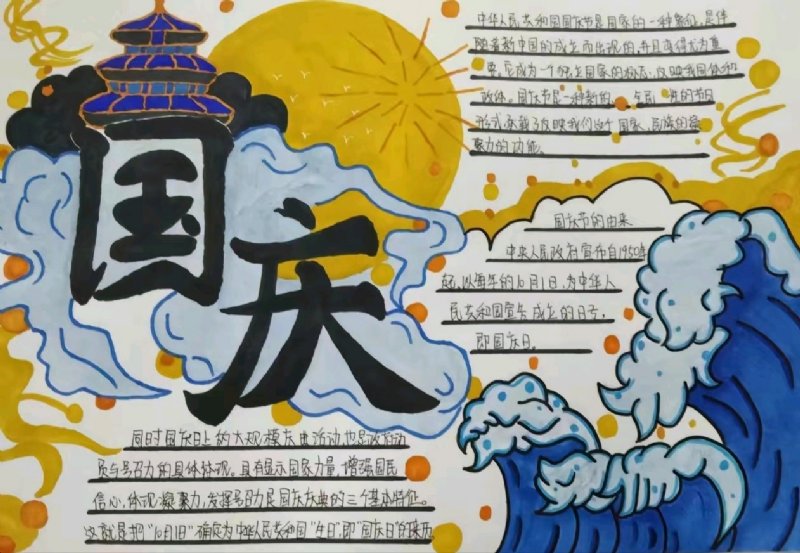 国庆
中华人民共和国国庆节是国家的一种象征,是伴
随着新中国的成立而出现的,并且变得尤为重
要。它成为一个独立国家的标志,反映我国体和
政体。国庆节是一种新的、全民一族的节日
形式,承载了反映我们这个国家、民族的凝
聚力的功能。
国庆节的由来
中央人民政府宣布自1950年
起,以每年的10月1日,为中华人
民共和国宣告成立的日子,
即国庆日。
同时国庆日上的大规模庆典活动也是政府动
员与号召力的具体体现。具有显示国家力量、增强国民
信心,体现凝聚力,发挥号召力是国庆庆典的三个基本特征。
这就是把“10月1日”确定为中华人民共和国“生日”,即“国庆日”的来历